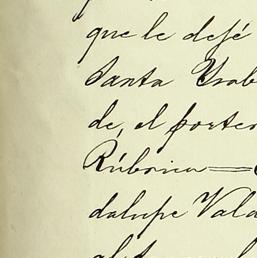 que le dejé
Santa Ysab
de, el porter
Rúbrica=
dalupe Vald